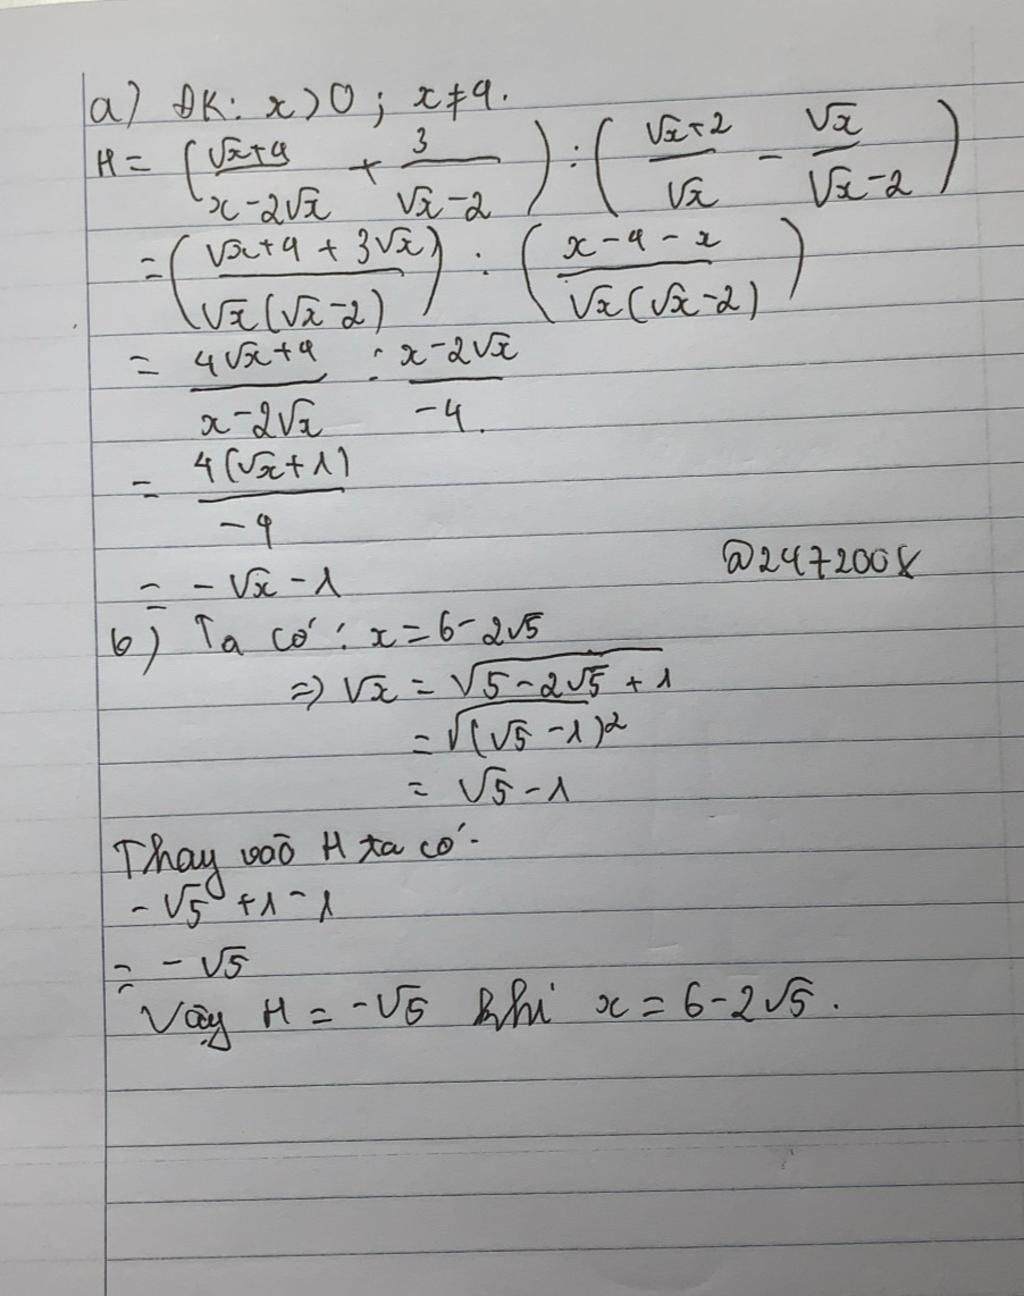 a) ĐK: x>0; x≠4.
H = ((√x+4)/(x-2√x) + 3/(√x-2)) : ((√x+2)/√x - √x/(√x-2))
= ((√x+4+3√x)/(√x(√x-2))) : ((x-4-x)/(√x(√x-2)))
= (4√x+4)/(x-2√x) . (x-2√x)/(-4).
= 4(√x+1)/(-4)
= -√x-1
@2472008
b) Ta có: x=6-2√5
=> √x = √(5-2√5+1)
= √((√5-1)²)
= √5-1
Thay vào H ta có.
-√5+1-1
= -√5
Vậy H = -√5 khi x = 6-2√5.